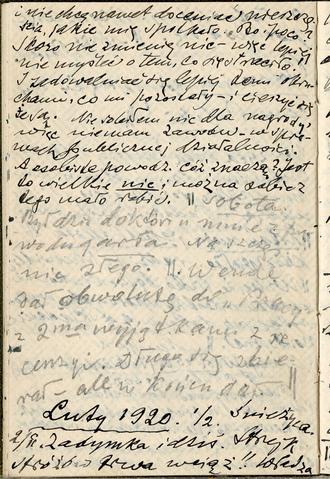 i nie chcę nawet doceniać nieszczę-
ścia, jakie mię spotkało. Bo i poco?
Skoro nie zmienię nic – więc lepiej
nie myśleć o tem, co się straciło
I zadowalniać się lepiej temi okru-
chami, co mi pozostały – i cieszyć się
że są. Nie robiłem nic dla nagrody,
więc niemam zawodów – w spra-
wach publicznej działalności.
A osobiste powodz. cóż znaczą? Jest
to wielkie nic i można sobie z
tego mało robić. || Sobota.
Był dziś doktór u mnie z po-
wodu gardła. Na szczęś
nic złego. ||. Wende
dał obwolutę do
z 2ma wyjątkami z re
cenzji. Długo się zbie-
rał – ale w końcu dał. ||
Luty 1920. 1/2. Śnieżyca.
2/II. Zadymka i dziś. Strejk
stróżów trwa wciąż!! Władza